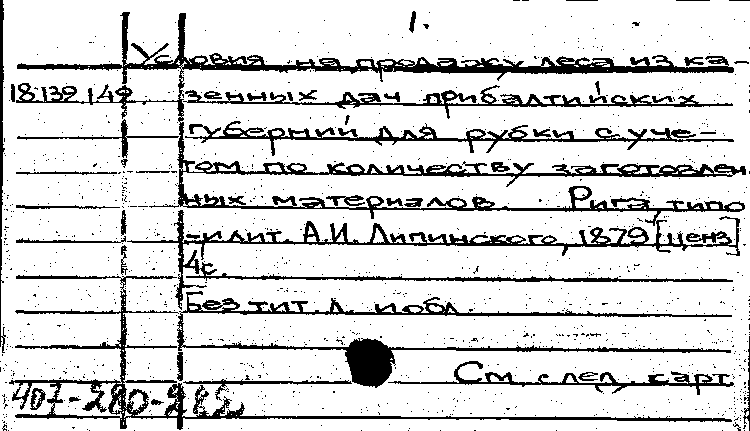 1.
Условия на продажу леса из ка-
18.139.149. зенных дач прибалтийских
губерний для рубки с уче-
том по количеству заготовлен
ных материалов. Рига, типо
-и лит. А.И. Липинского, 1879 [ценз]
4с.
Без тит. л. и обл.
См. след. карт
407-280-282